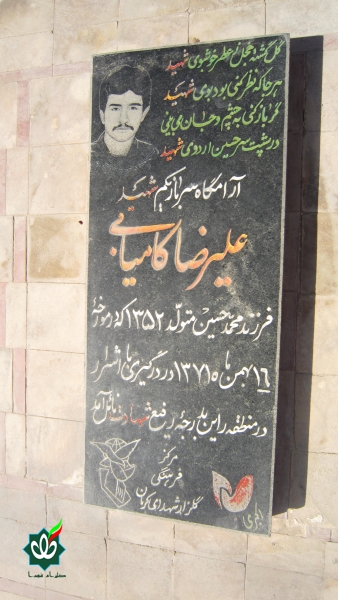 گل گشته خجل از عطر خوشبوی شهید
هر جا که نظر کنی بود بوی شهید
گر باز کنی به چشم دل می‌بینی
در پشت سر حسین اردوی شهید
آرامگاه سرباز یکم شهید
علیرضا کامیابی
فرزند محمدحسین متولد ۱۳۵۲ که در مورخهٔ
۱۶ بهمن ماه ۱۳۷۱ در درگیری با اشرار
در منطقه راین بدرجهٔ رفیع شهادت نائل آمد
مرکز
فرهنگی
گلزار شهدای کرمان